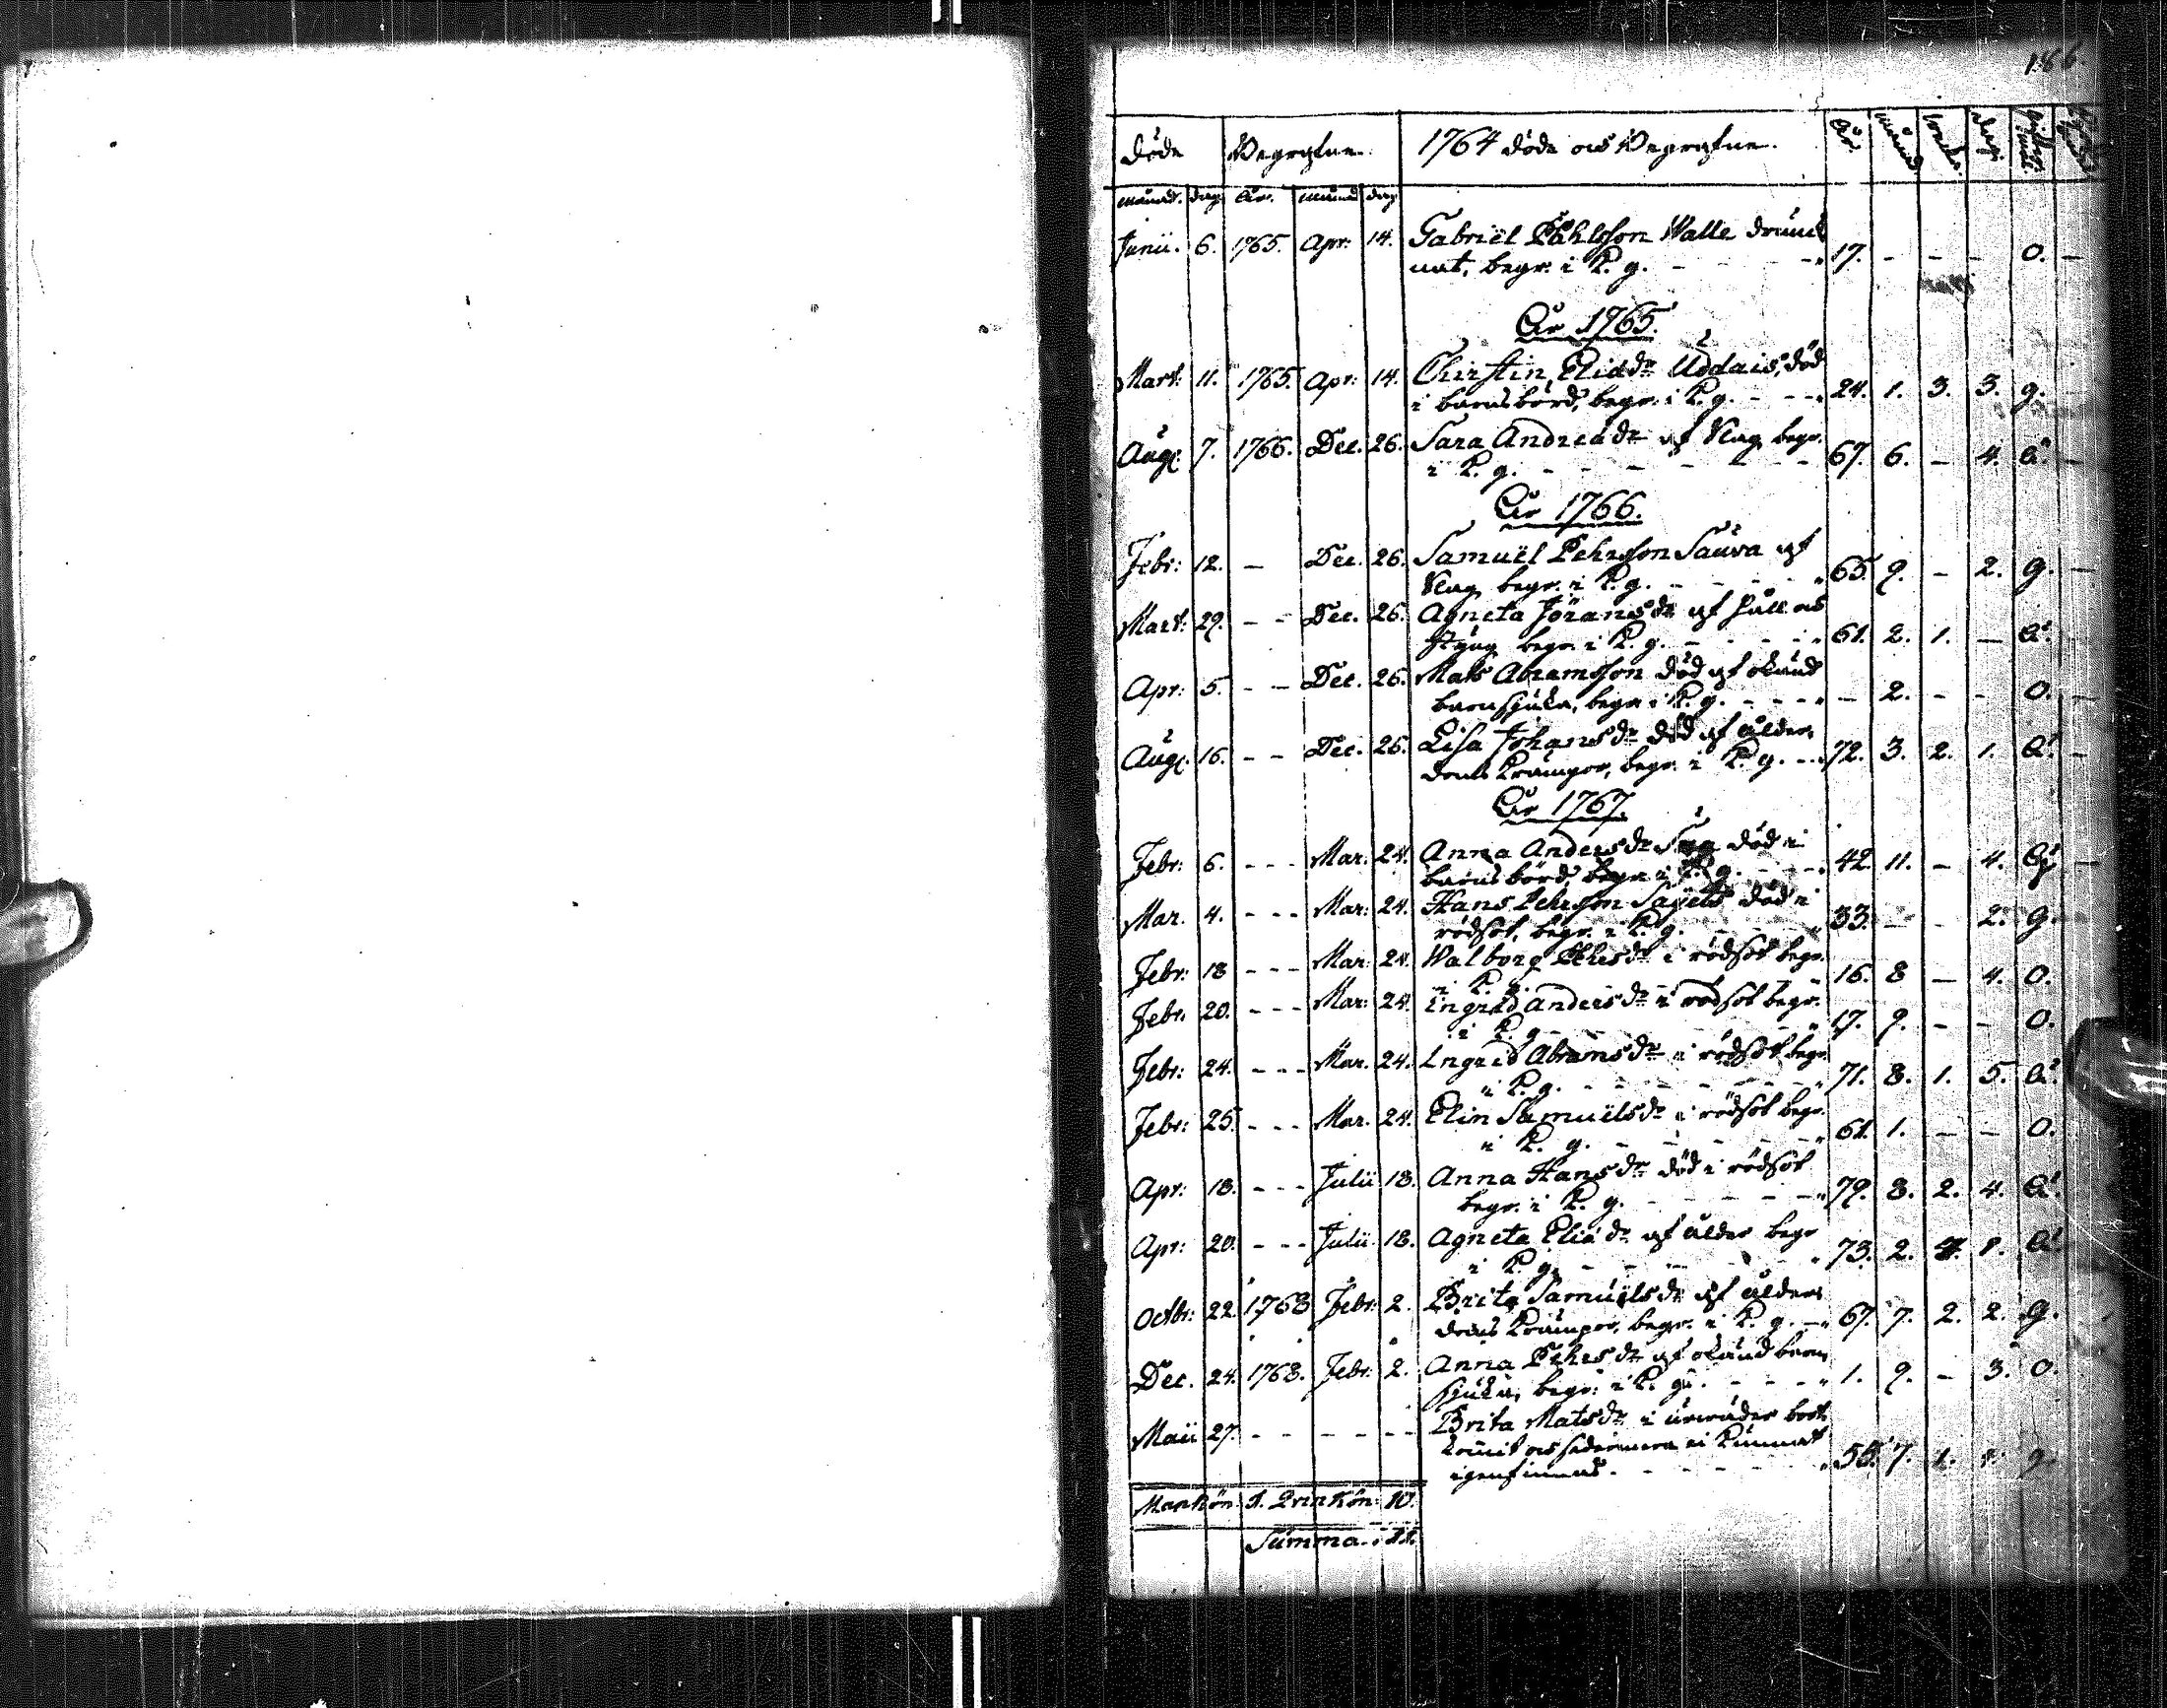 166.
Döde Begrafne. 1764 döde och Begrafne. år månad wekor dag
månad. dag år. månad dag
Junii. 6. 1765. Apr: 14. Gabriël Påhlsson Walle drunk
nat, begr. i K. g. - - - 17. - - - O. -
År 1765.
Mart: 11. 1765. Apr: 14. Chirstin Eliædr Uddais, död
i barnsbörd, begr. i K. g. - - - 24. 1. 3. 3. g.
Aug: 7. 1766. Dec. 26. Sara Andreædr af Slag begr.
i K. g. - - - - - - 67. 6. - 4. E. -
År 1766.
Febr: 12. - Dec. 26. Samuël Pehrsson Saûva af
Slag begr. i K. g. - - - - 65. 9. - 2. g. -
Mart: 29. - - Dec. 26. Agneta Jöransdr af håll och
styng begr. i K. g. - - - - 61. 2. 1. - E.
Apr: 5. - - Dec. 26. Mats Abramsson död af okänd
barnsjuka, begr. i K. g. - - - - 2. - - O. -
Aug: 16. - - Dec. 26. Lisa Johansdr död af ålder
doms krämpor, begr. i K. g. - - 72. 3. 2. 1. E. -
År 1767.
Febr: 6. - - - Mar: 24. Anna Andersdr död i
barnsbörd, begr. i K. g. - - - 42 11. - 4. -
Mar. 4. - - - Mar: 24. Hans Pehrsson död i
rödsot, begr. i K. g. - - - 33. - - 2. g.
Febr: 18 - - - Mar: 24. Walborg Pehrsdr i rödsot begr.
i K. g. 16. 8 - 4. O.
Febr. 20. - - - Mar: 24. Ingrid Andersdr i rödsot begr.
i K. g - - - 17. 9. - - O.
Febr: 24. - - - Mar. 24. Ingrid Abramsdr i rödsot begr.
i K. g. - - - - - - 71. 8. 1. 5. E.
Febr: 25. - - - Mar. 24. Elin Samuëlsdr i rödsot begr.
i K. g. - - - - - - 61. 1. - - O.
Apr: 18. - - - Julii 18. Anna Hansdr död i rödsot
begr. i K. g. - - - - - - 79. 8. 2. 4. E.
Apr: 20. - - - Julii 18. Agneta Eliædr af ålder begr
i K. g. - - - - - 73. 2. E.
Octbr: 22. 1768 Febr: 2. Brita Samuëlsdr af ålder
doms krämpor, begr. i K. g. - 67. 7. 2. 2. g.
Dec. 24. 1768. Febr: 2. Anna Pehrsdr af okänd barn
sjuka, begr. i K. g. - - - - 1. 9. - 3. O.
Maii 27. - - - - - - Brita Matsdr i urwäder bort
kommit och sedermera ei kunnat
igenfinnas. - - - - - 55. 7. 1. g.
Mankön 1. Qvinkön: 10.
Summa: 11.